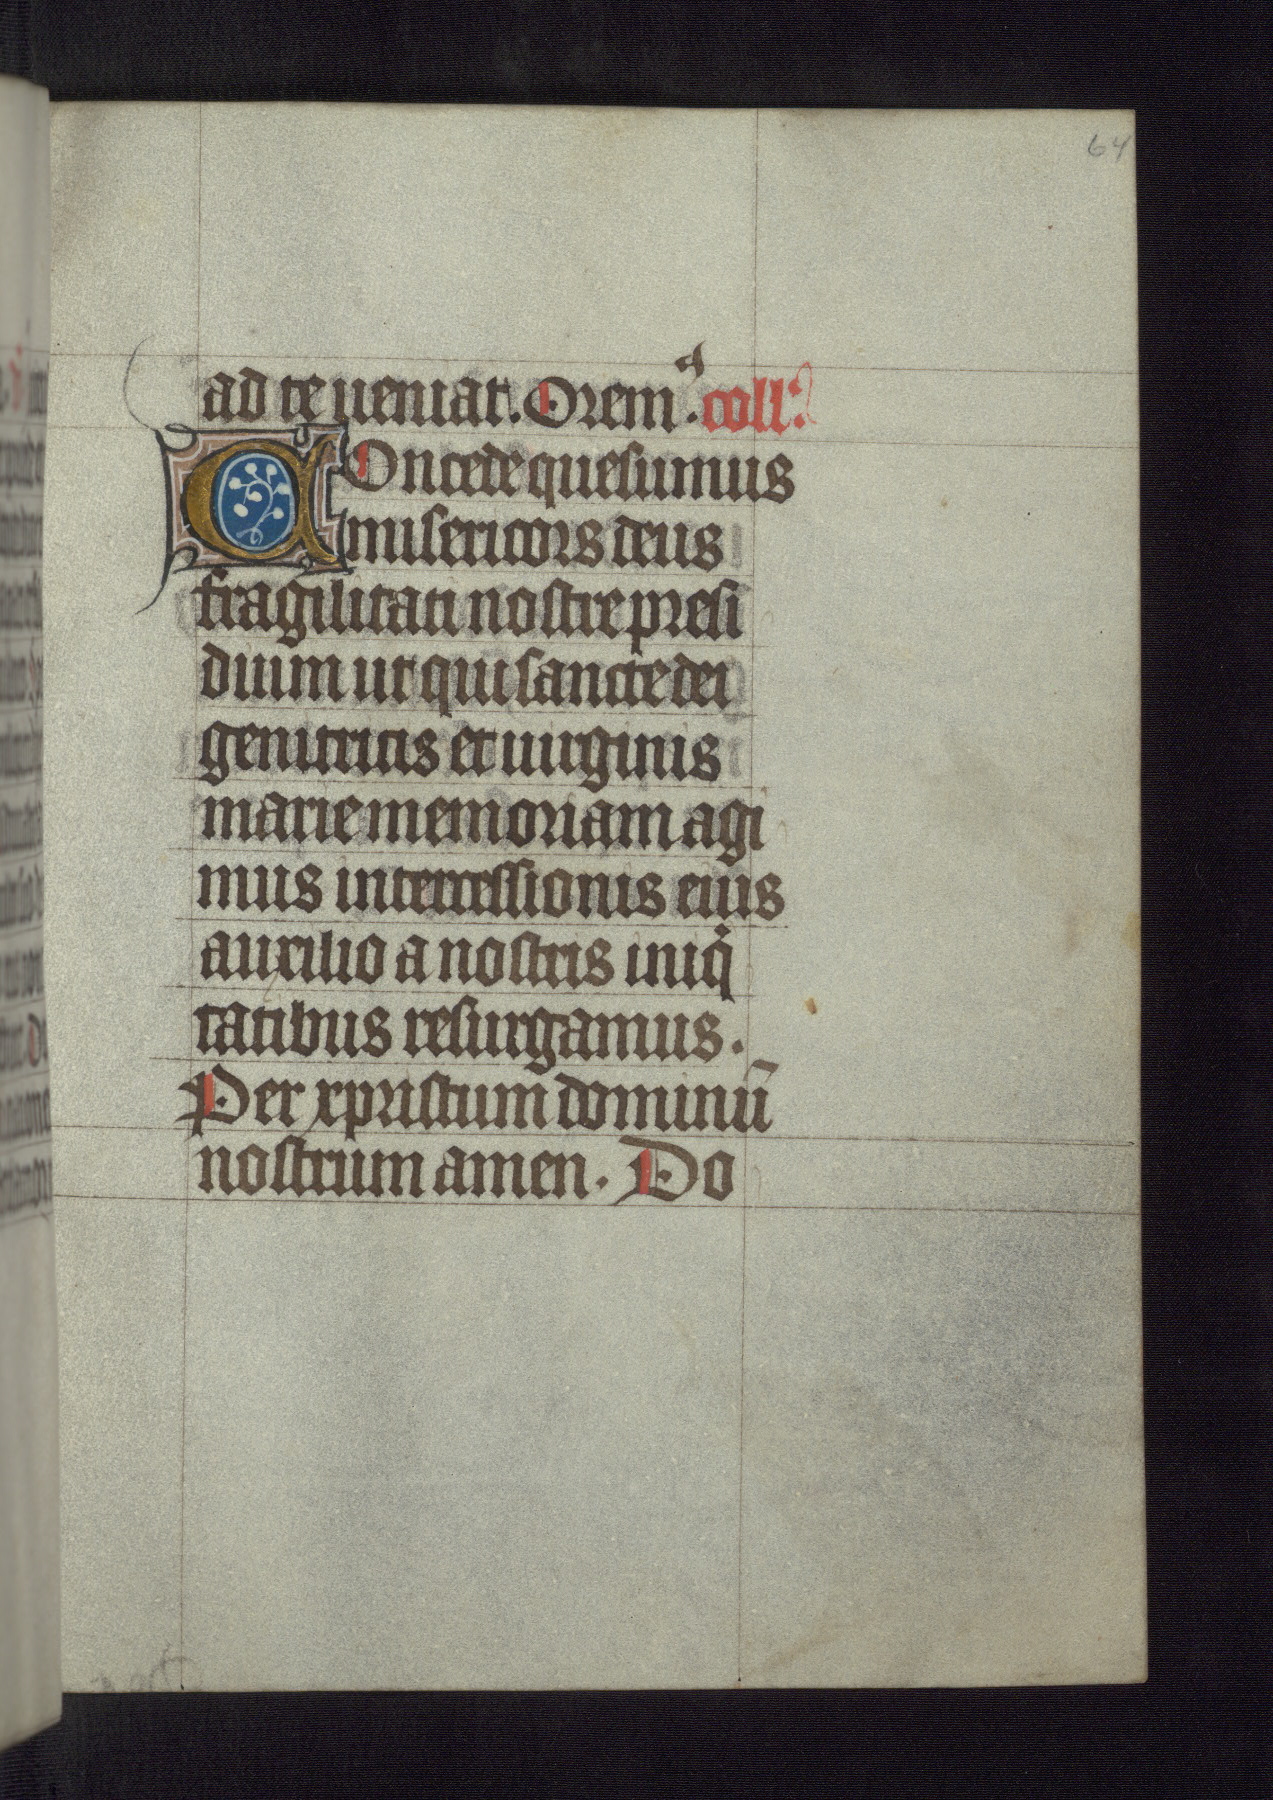 64
ad te ueniat. Orem⁹. coll':
COncede quesumus
misericors deus
fragilitati nostre presi
dium ut qui sancte dei
genitricis et uirginis
marie memoriam agi
mus intercessionis eius
auxilio a nostris iniqͥ
tatibus resurgamus.
Per xpristum dominū
nostrum amen. Do